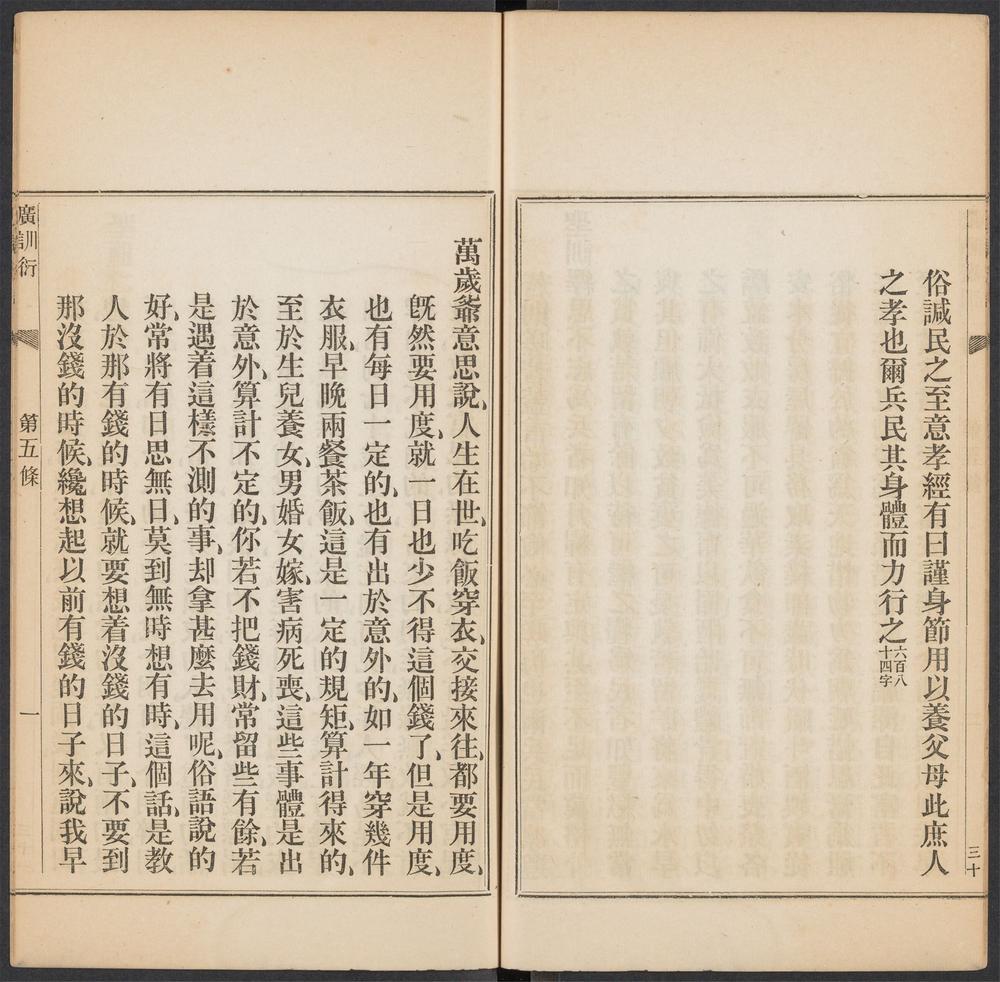 俗諴民之至意孝經有曰謹身節用以養父母此庶人
之孝也爾兵民其身體而力行之六百八十四字
三十
萬歲爺意思說、人生在世、吃飯穿衣、交接來往、都要用度、
旣然要用度、就一日也少不得這個錢了、但是用度、
也有每日一定的、也有出於意外的、如一年穿幾件
衣服、早晚兩餐茶飯、這是一定的規矩、算計得來的、
至於生兒養女、男婚女嫁、害病死喪、這些事體是出
於意外、算計不定的、你若不把錢財、常留些有餘、若
是遇着這樣不測的事、却拿甚麼去用呢、俗語說的
好、常將有日思無日、莫到無時想有時、這個話、是教
人於那有錢的時候、就要想着沒錢的日子、不要到
那沒錢的時候、纔想起以前有錢的日子來、說我早
廣訓衍
第五條
一